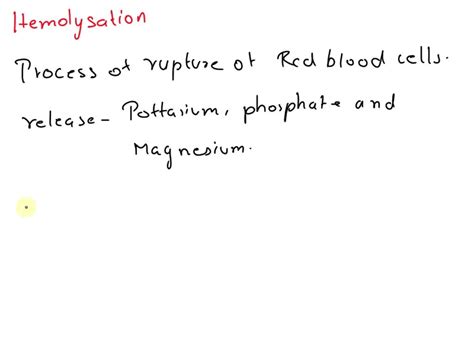 Hemolysation
Process of rupture of Red blood cells.
release - Pottasium, phosphate and
Magnesium.